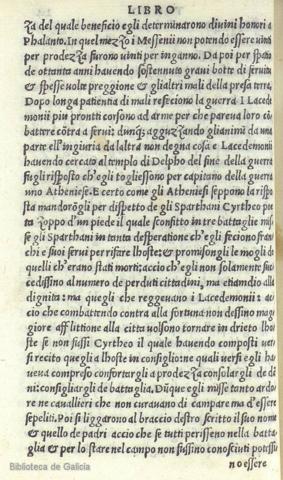 LIBRO
za del quale beneficio egli determinarono divini honori a
Phalanto. In quel mezzo i Messenii non potendo essere vinti
per prodezza furono vinti per inganno. Da poi per spatio
de ottanta anni havendo sostennuto gravi botte di servitu
& spesse volte preggione & gli altri mali della presa terra.
Dopo longa patientia di mali refeciono la guerra I Lacede
monii piu pronti corsono ad arme per che pareva loro cō
battere cōtra a servi: dunq; agguzzando gli animi da una
parte ell'ingiuria da laltra non degna cosa e Lacedemonii
havendo cercato al templo di Delpho del fine della guerra
fugli risposto ch'egli togliessono per capitano della guerra
uno Atheniese. E certo come gli Atheniesi seppono la rispo
sta mandorōgli per dispetto de gli Sparthani Cyrtheo poe
ta zoppo d'un piede il quale sconfitto in tre battaglie mis
se gli Sparthani in tanta desperatione ch'egli feciono franchi
e suoi servi per rifare lhoste: & promisongli le mogli di
quelli ch'erano stati morti: accio ch'egli non solamente suc
cedissino al numero de perduti cittadini, ma etiamdio alla
dignita: ma quegli che reggevano i Lacedemonii: ac
cio che combattendo contra alla fortuna non dessino mag
giore afflittione alla citta volsono tornare in drieto lhos
te se non fussi Cyrtheo il quale havendo composti ver
si recito quegli a lhoste in consiglio: ne quali versi egli ha
veva compreso confortar gli a prodezza consolar gli de dā
ni: consigliar gli de battaglia. Dūque egli misse tanto ardo
re ne cavallieri che non curavano di campare ma d'essere
sepeliti. Poi si liggarono al braccio destro scritto il suo nome
& quello de padri accio che se tutti perisseno nella batta
glia & per lo stare nel campo non fussino conosciuti potessi
no essere
Biblioteca de Galicia